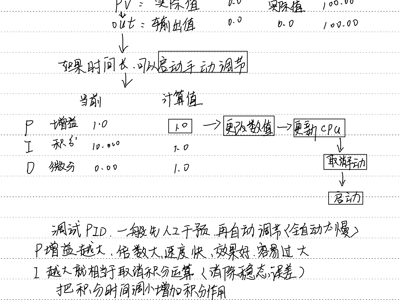 PV：实际值 0.0 实际值 100.00
out：输出值 0.0 0.0 100.00
如果时间长，可以启动手动调节
当前 计算值
P 增益 1.0 1.0 → 更改数值 → 更新CPU
I 积分 10.000 1.0
D 微分 0.00 1.0
取消手动
启动
调试PID，一般先人工干预，再自动调节（全自动太慢）
P增益越大，倍数大，速度快，效果好，容易过大
I越大就相当于取消积分运算（消除稳态误差）
把积分时间调小增加积分作用